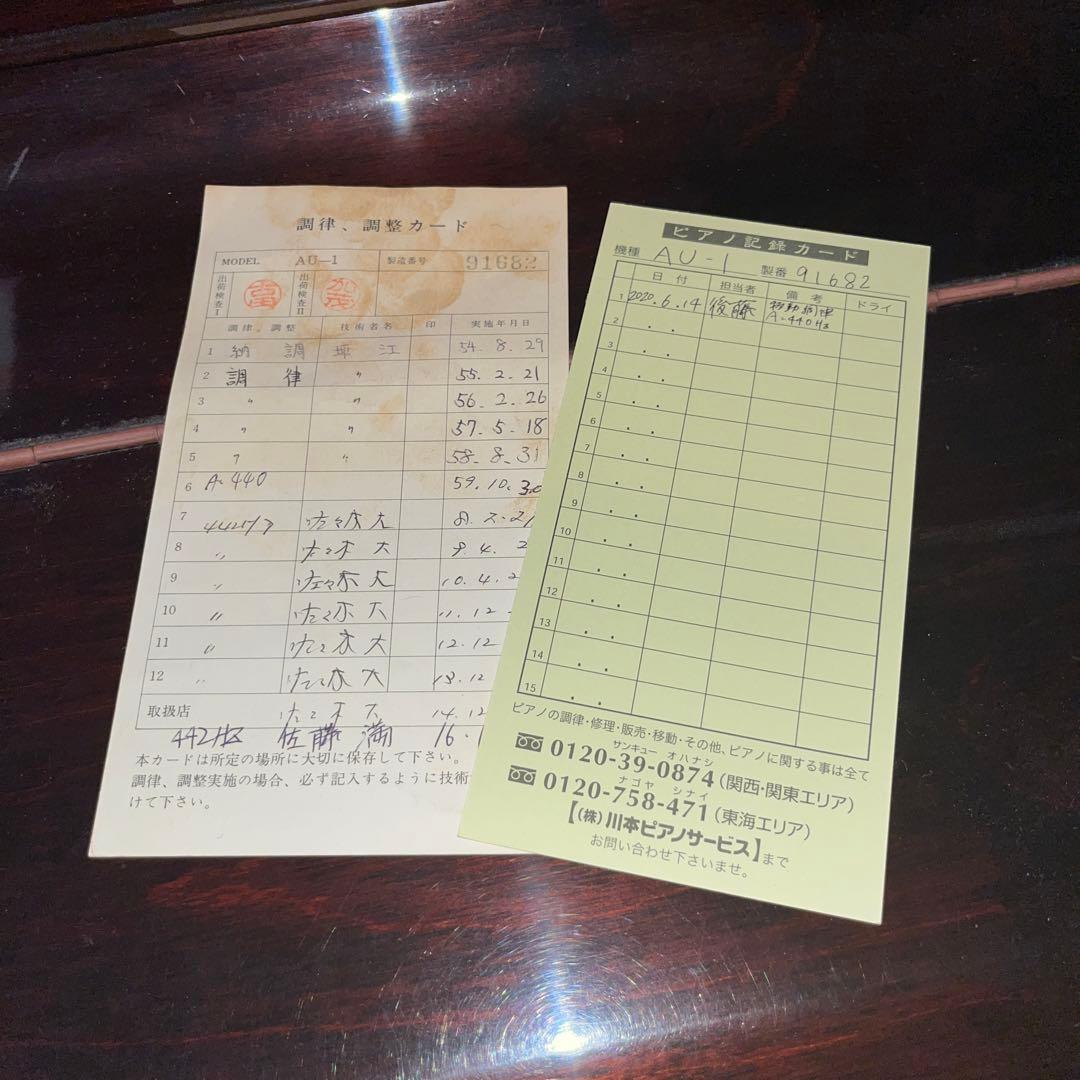 調律、調整カード
MODEL AU-1 製造番号 91682
出荷検査I 出荷検査II 加茂
調律、調整 技術者名 印 実施年月日
1 納調 54.8.29
2 調律 〃 55.2.21
3 〃 〃 56.2.26
4 〃 〃 57.5.18
5 〃 〃 58.8.31
6 A-440 59.10.30
7 佐々木大
8 〃 佐々木大 9.4.2
9 〃 佐々木大 10.4.2
10 〃 佐々木大 11.12
11 〃 佐々木大 12.12
12 〃 佐々木大 13.12
取扱店 佐々木大 14.12
佐藤満 16.
本カードは所定の場所に大切に保存して下さい。
調律、調整実施の場合、必ず記入するように技術
けて下さい。
ピアノ記録カード
機種 AU-1 製番 91682
日付 担当者 備考 ドライ
1 2020.6.14 後藤 移動調律
A-440Hz
2
3
4
5
6
7
8
9
10
11
12
13
14
15
ピアノの調律・修理・販売・移動・その他、ピアノに関する事は全て
サンキュー オハナシ
0120-39-0874(関西・関東エリア)
ナゴヤ シナイ
0120-758-471(東海エリア)
【(株)川本ピアノサービス】まで
お問い合わせ下さいませ。